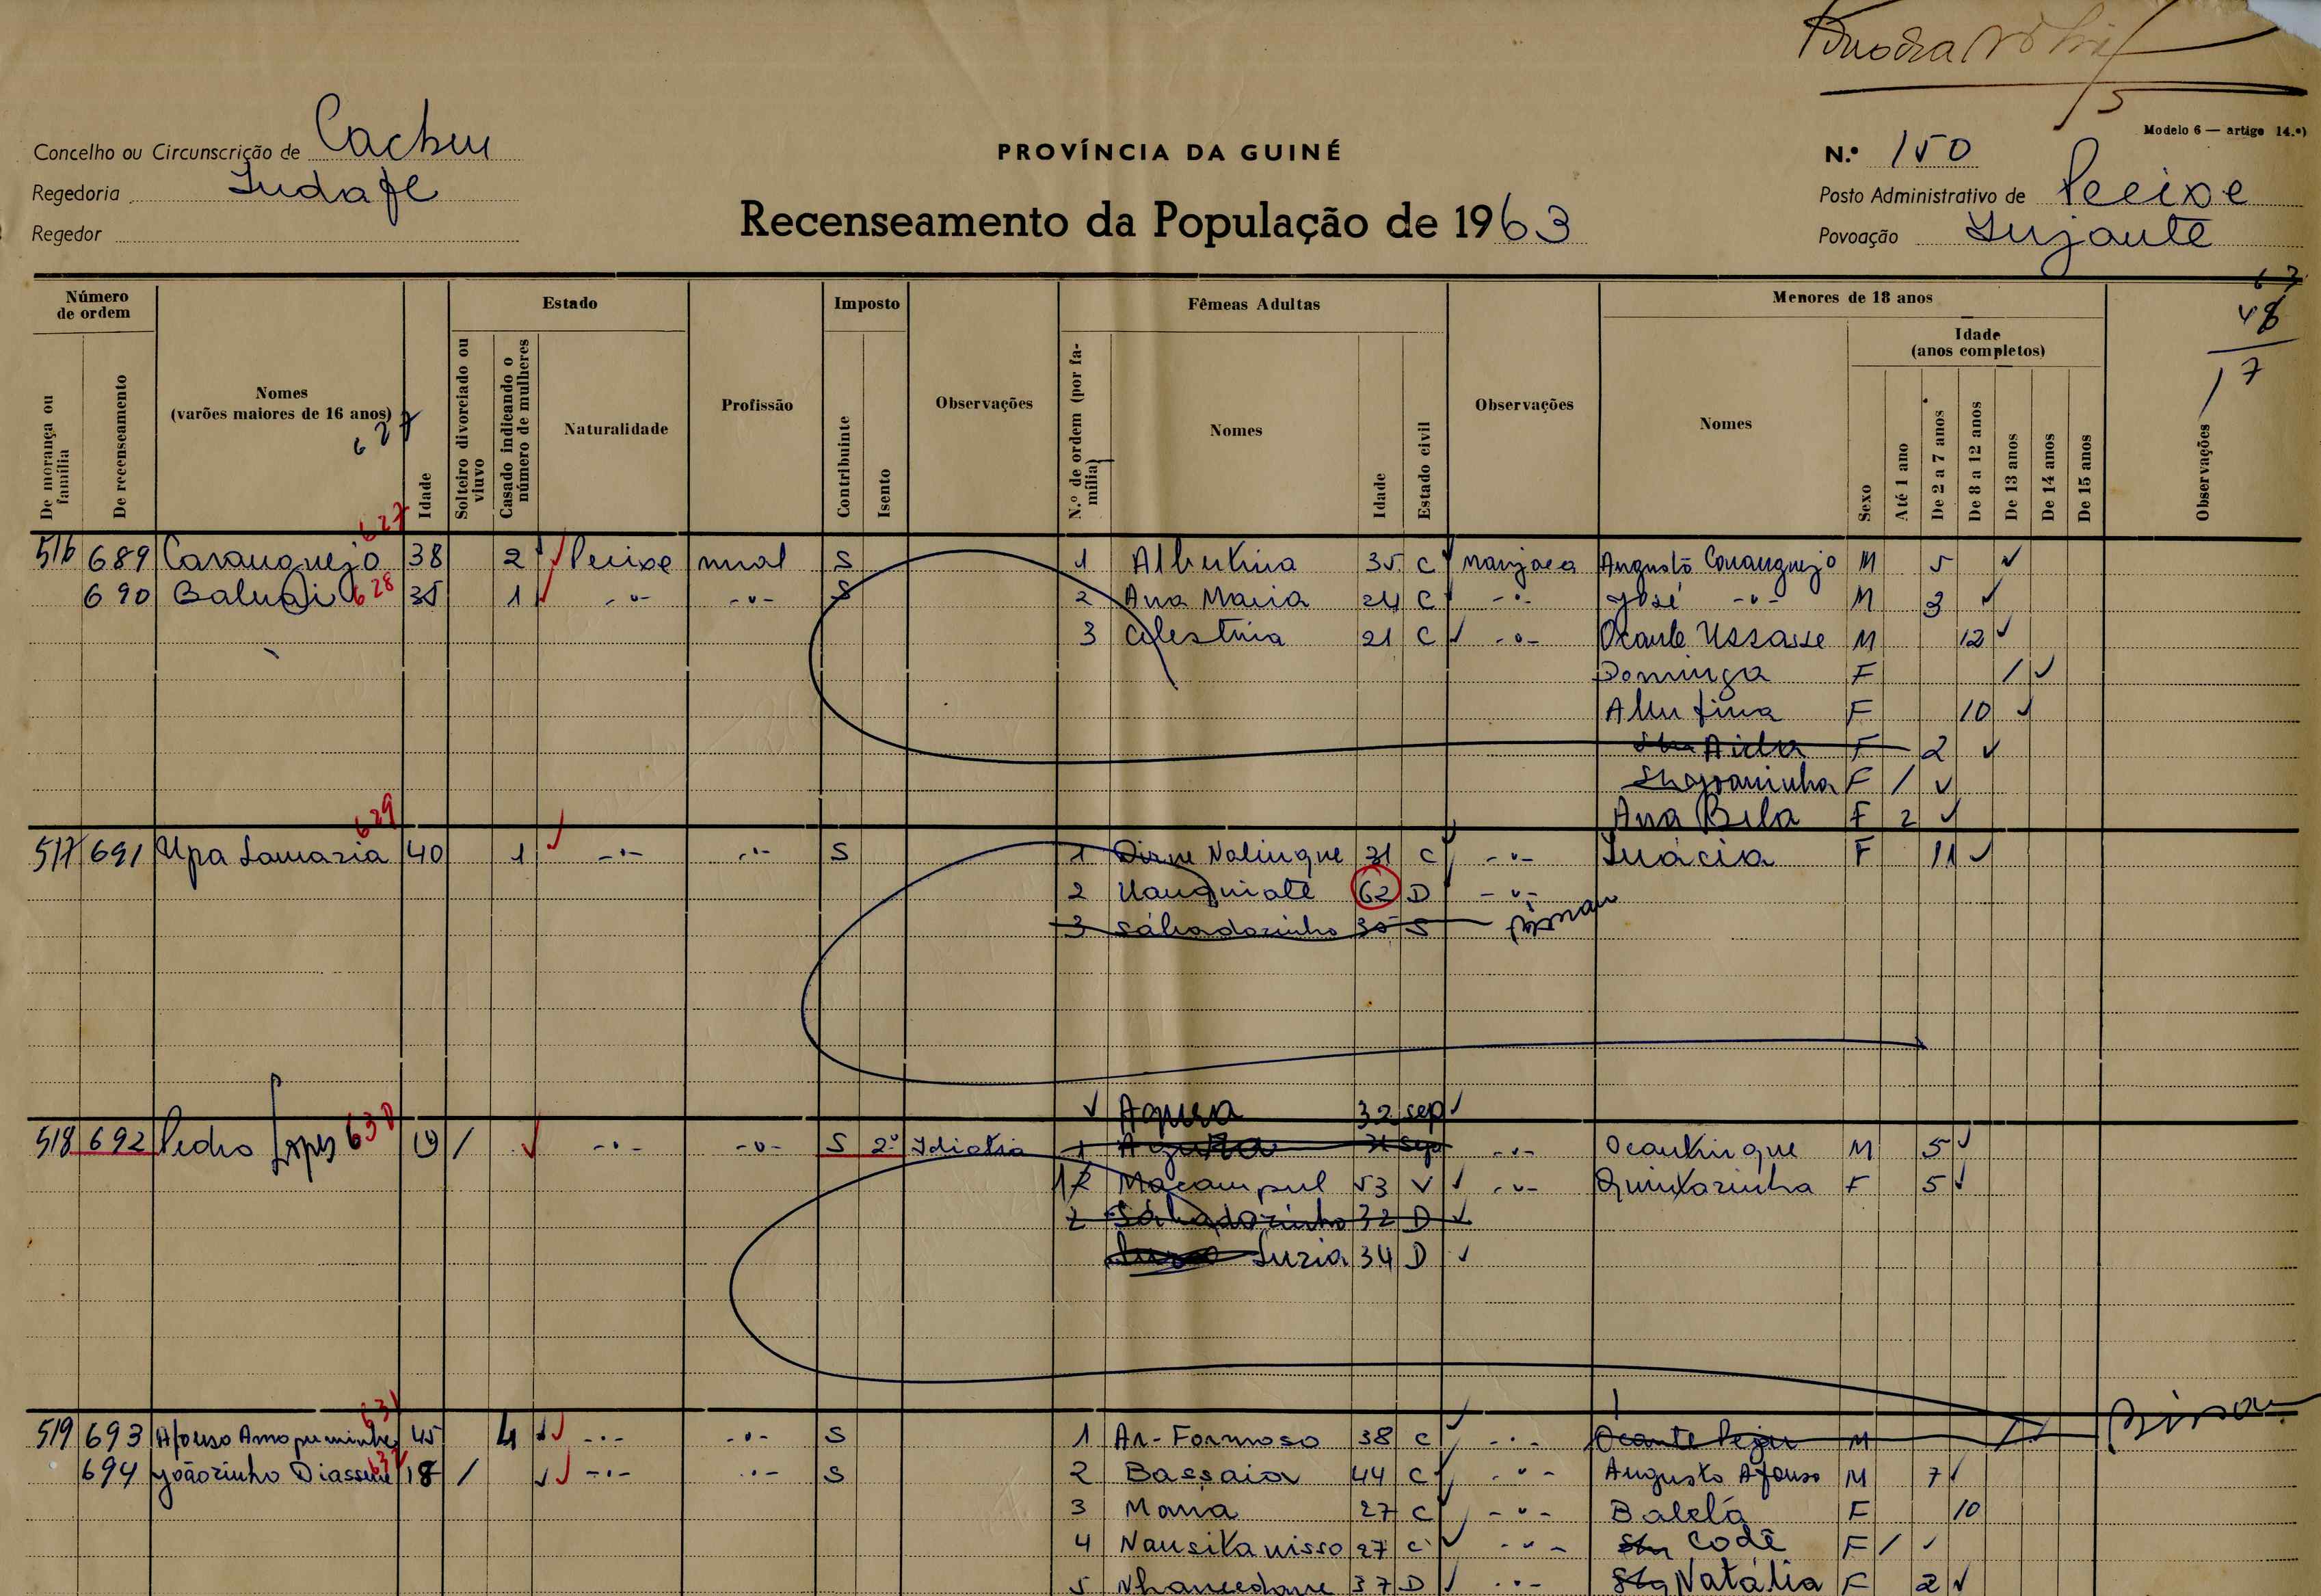 Modelo 6 — artigo 14.º)
Concelho ou Circunscrição de Cacheu
PROVÍNCIA DA GUINÉ
N.º 150
Regedoria
Posto Administrativo de Pecixe
Recenseamento da População de 1963
Regedor
Povoação
67
48
17
Número de ordem
De morança ou família
De recenseamento
Nomes (varões maiores de 16 anos)
627
Idade
Estado
Solteiro divorciado ou viuvo
Casado indicando o número de mulheres
Naturalidade
Profissão
Imposto
Contribuinte
Isento
Observações
Fêmeas Adultas
N.º de ordem (por família)
Nomes
Idade
Estado civil
Observações
Menores de 18 anos
Nomes
Sexo
Idade (anos completos)
Até 1 ano
De 2 a 7 anos
De 8 a 12 anos
De 13 anos
De 14 anos
De 15 anos
Observações
516 689 Caranguejo 627 38 2 Pecixe S 1 Albertina 35 C manjaca Augusto Caranguejo M 5
690 628 35 1 -"- -"- S 2 Ana Maria 24 C -"- José -"- M 3
3 Celestina 21 C -"- Ocante Ussasse M 12
Dominga F /
F 10
Aida F 2
Joaninha F /
Ana Bela F 2
517 691 Upa 629 40 1 -"- -"- S 1 Nalingue 31 C -"- F 11
2 62 D -"-
3 Sábadozinho 30 S
32 sep
518 692 Pedro Lopes 630 19 / -"- -"- S 2º Idiotia 1 sep -"- M 5
1 Macampul 53 V -"- F 5
2 Sábadozinho 32 D
Luzia 34 D
519 693 Afonso 631 45 4 -"- -"- S 1 An-Formoso 38 C -"- Ocante M
694 Joãozinho 632 18 / -"- -"- S 2 Bassaia 44 C -"- Augusto Afonso M 7
3 Maria 27 C -"- F 10
4 27 C -"- Codê F /
5 37 D -"- Natália F 2